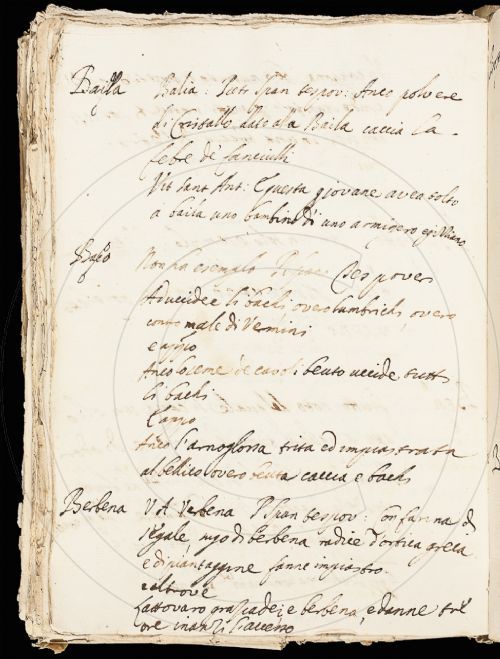 Bajla Balia: Pietr Span tespov: Anco polvere
di Cristallo dato ala Baila caccia la
febre de fanciulli
Vit Sant Ant: Questa giovane avea tolto
a baila uno bambino di uno armigero
Baco Non ha esemplo Tes pover
Aducidere li bachi overo lumbrichi overo
contro male di Vermini
e appio
Anco bieme de cavoli beuto uccide tutti
li bachi
Anco l'arnoglossa trita ed impiastrata
al bellico overo beuta caccia e bachi
Berbena V A Verbena P Span tespov: Con farina di
segale sugo di berbena radice d'ortica greca
e di piantaggine fanne impiastro
e altrove
Lattovaro e berbena, e danne tre
ore inanzi l'accesso